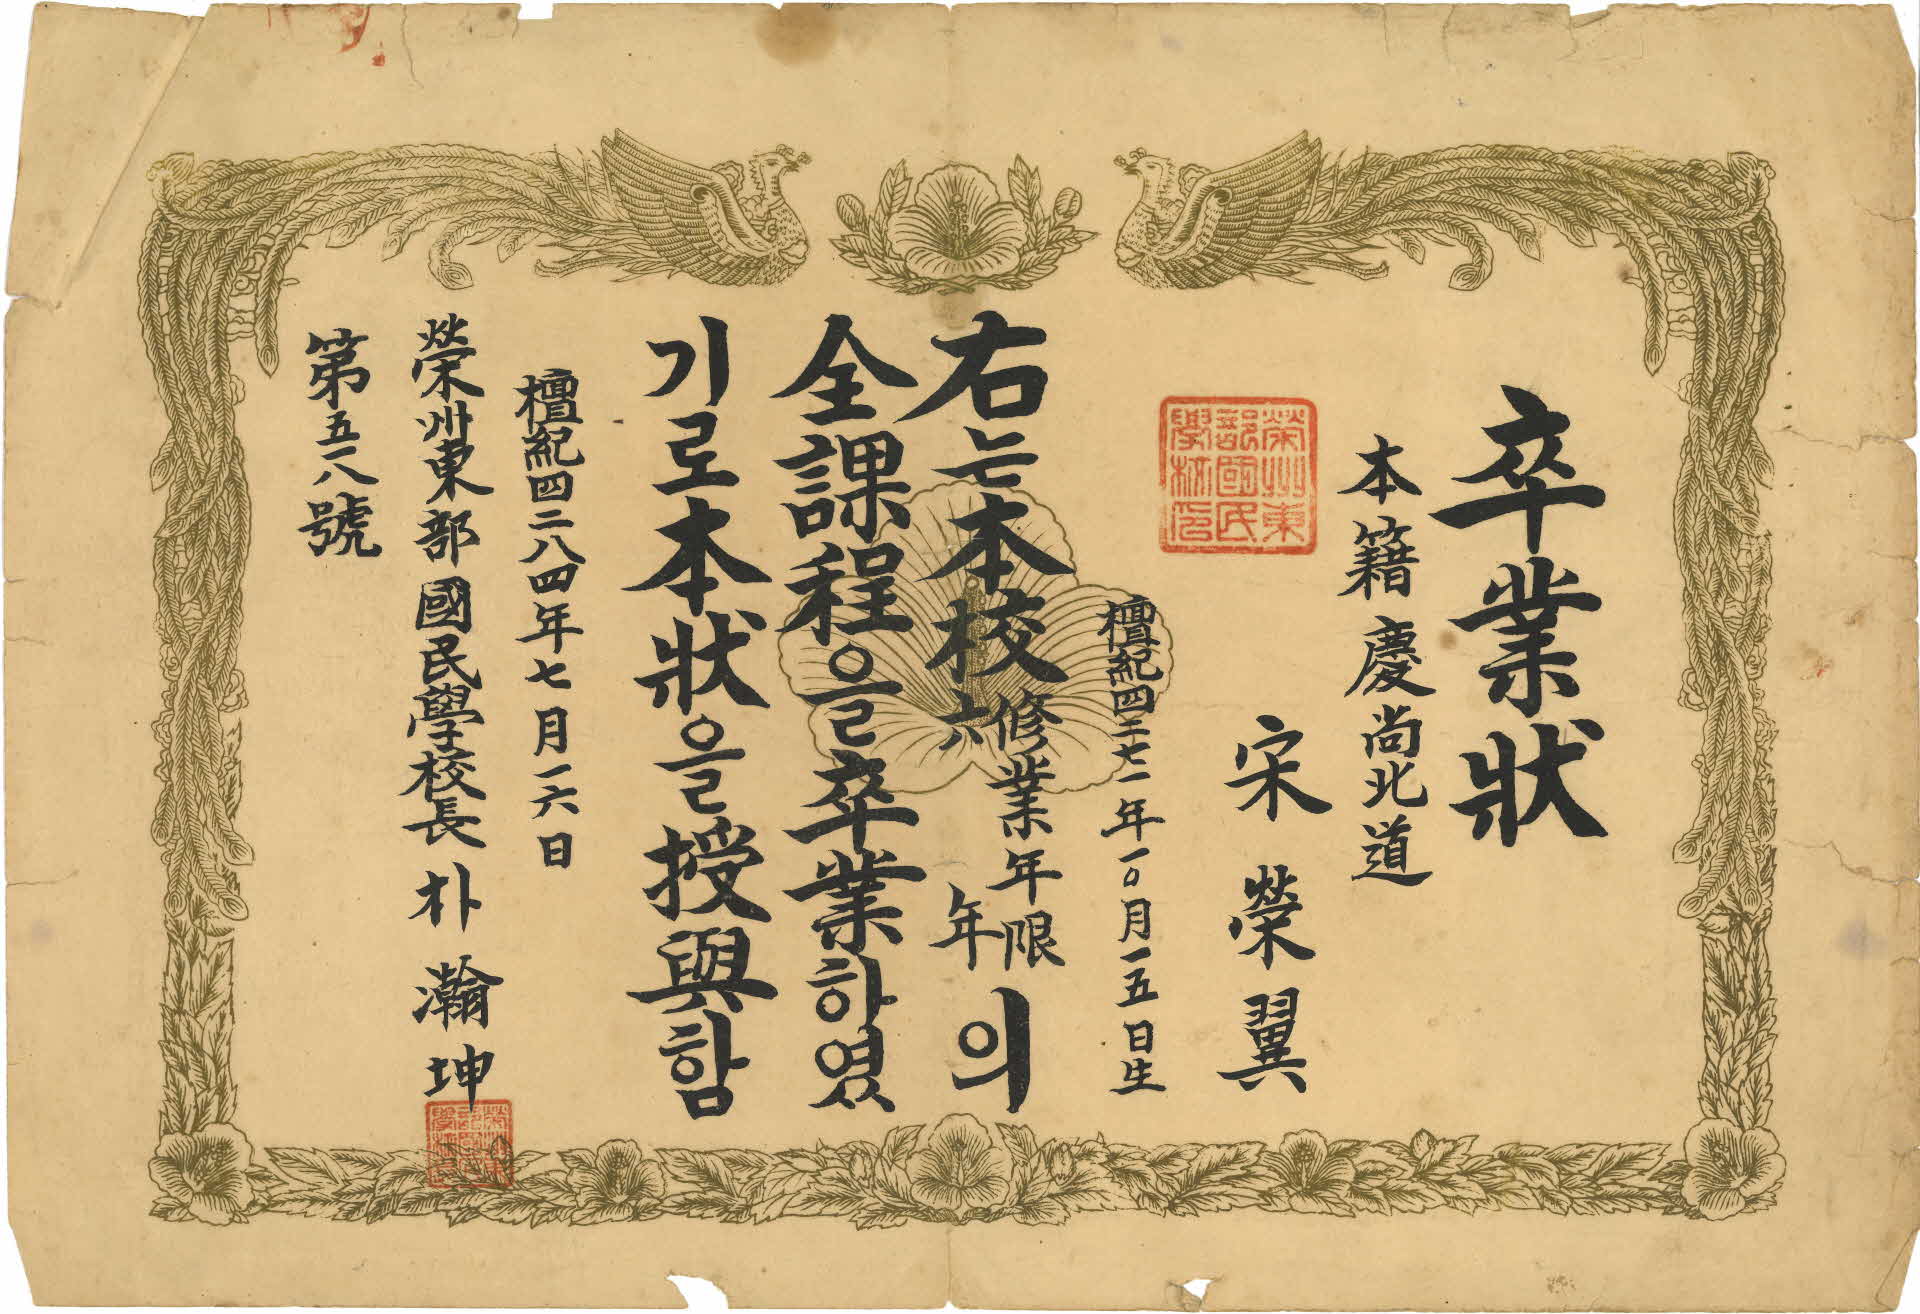 卒業狀
本籍慶尙北道
宋榮翼
檀紀四二七一年一〇月一五日生
榮州東部國民學校印
右는本校修業年限六年의
全課程을卒業하였
기로本狀을授與함
檀紀四二八四年七月一六日
榮州東部國民學校長 朴瀚坤
第五一八號